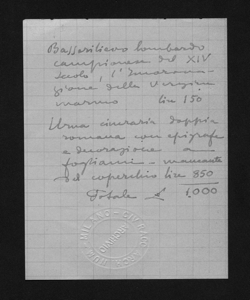 Bassorilievo lombardo
campionese del XIV
secolo, l'Incorona-
zione della Vergine
marmo lire 150
Urna cineraria doppia
romana con epigrafe
e decorazione a
fogliami - mancante
del coperchio lire 850
Totale £ 1,000
MILANO